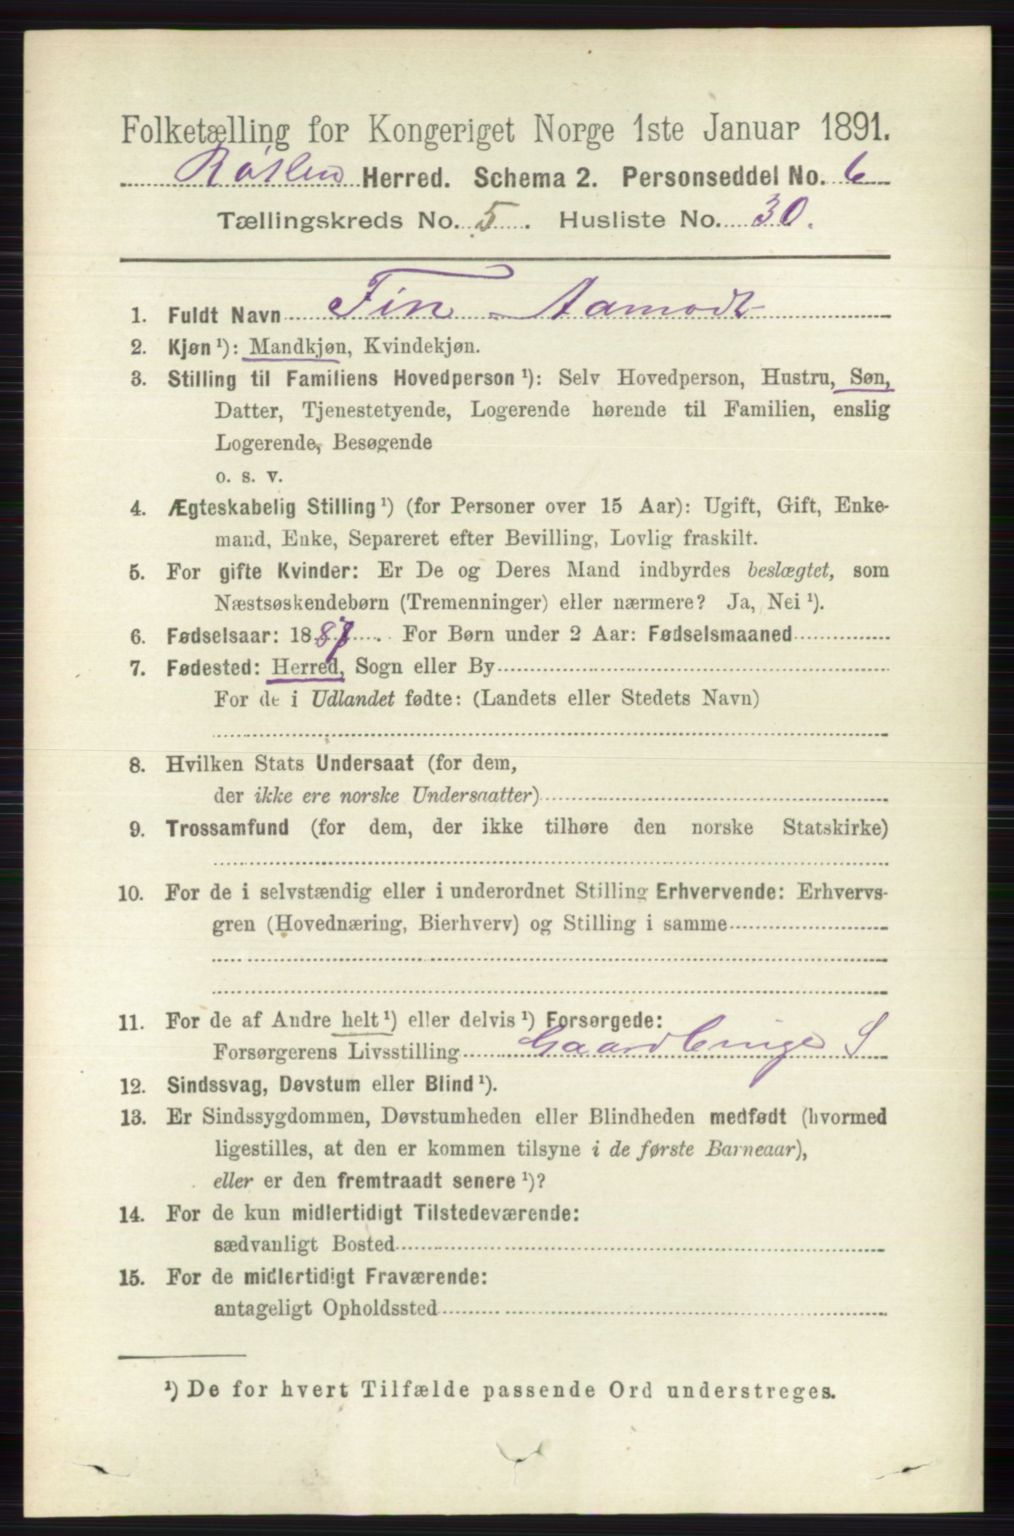 Folketælling for Kongeriget Norge 1ste Januar 1891.
Røken Herred. Schema 2. Personseddel No. 6
Tællingskreds No. 5. Husliste No. 30.
1. Fuldt Navn Fin Aamodt
2. Kjøn ¹): Mandkjøn, Kvindekjøn.
3. Stilling til Familiens Hovedperson ¹): Selv Hovedperson, Hustru, Søn,
Datter, Tjenestetyende, Logerende hørende til Familien, enslig
Logerende, Besøgende
o. s. v.
4. Ægteskabelig Stilling ¹) (for Personer over 15 Aar): Ugift, Gift, Enke-
mand, Enke, Separeret efter Bevilling, Lovlig fraskilt.
5. For gifte Kvinder: Er De og Deres Mand indbyrdes beslægtet, som
Næstsøskendebørn (Tremenninger) eller nærmere? Ja, Nei ¹).
6. Fødselsaar: 1887. For Børn under 2 Aar: Fødselsmaaned
7. Fødested: Herred, Sogn eller By
For de i Udlandet fødte: (Landets eller Stedets Navn)
8. Hvilken Stats Undersaat (for dem,
der ikke ere norske Undersaatter)
9. Trossamfund (for dem, der ikke tilhøre den norske Statskirke)
10. For de i selvstændig eller i underordnet Stilling Erhvervende: Erhvervs-
gren (Hovednæring, Bierhverv) og Stilling i samme
11. For de af Andre helt ¹) eller delvis ¹) Forsørgede:
Forsørgerens Livsstilling Gaardbruger S
12. Sindssvag, Døvstum eller Blind ¹).
13. Er Sindssygdommen, Døvstumheden eller Blindheden medfødt (hvormed
ligestilles, at den er kommen tilsyne i de første Barneaar),
eller er den fremtraadt senere ¹)?
14. For de kun midlertidigt Tilstedeværende:
sædvanligt Bosted
15. For de midlertidigt Fraværende:
antageligt Opholdssted
¹) De for hvert Tilfælde passende Ord understreges.